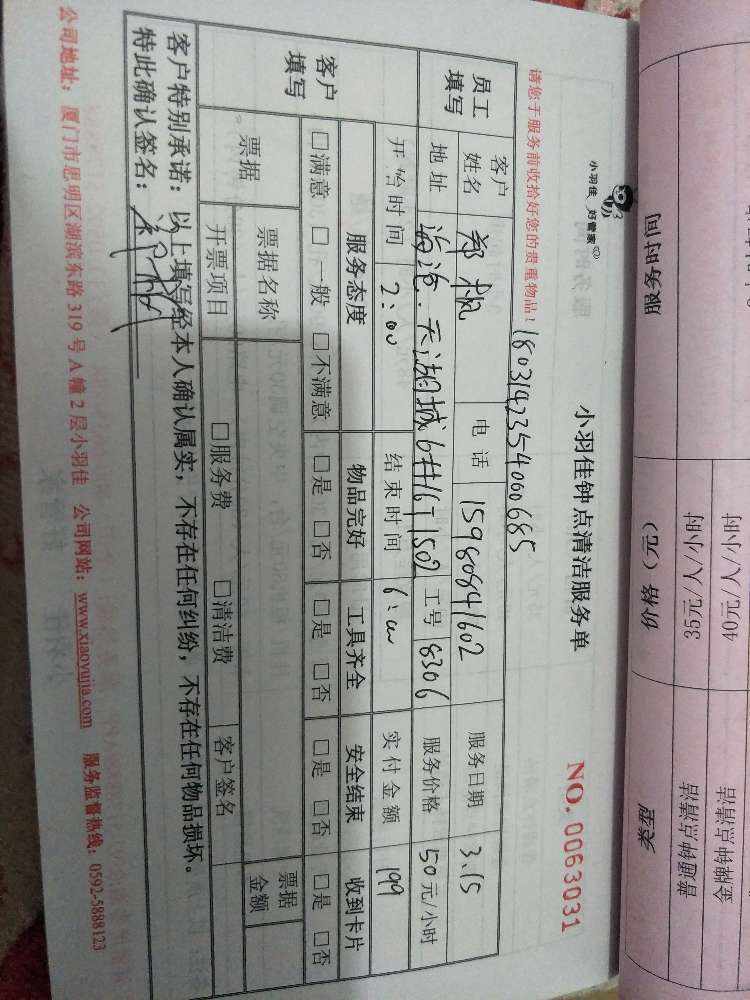 小羽佳 好管家
小羽佳钟点清洁服务单
NO. 0063031
请您于服务前收拾好您的贵重物品！
180314235400685
员工填写
客户姓名 郑枫 电话 15980841602 服务日期 3.15
地址 海沧.天湖城6#16T1502 工号 8306 服务价格 50元/小时
开始时间 2:00 结束时间 6:00 实付金额 199
客户填写
服务态度 物品完好 工具齐全 安全结束 收到卡片
□满意 □一般 □不满意 □是 □否 □是 □否 □是 □否 □是 □否
票据 票据名称 票据金额
开票项目 □服务费 □清洁费 客户签名
客户特别承诺：以上填写经本人确认属实，不存在任何纠纷，不存在任何物品损坏。
特此确认签名：
公司地址：厦门市思明区湖滨东路319号A幢2层小羽佳 公司网站：www.xiaoyujia.com 服务监督热线：0592-5888123
服务时间 价格（元） 类型
35元/人/小时 普通钟点清洁
40元/人/小时 金牌钟点清洁